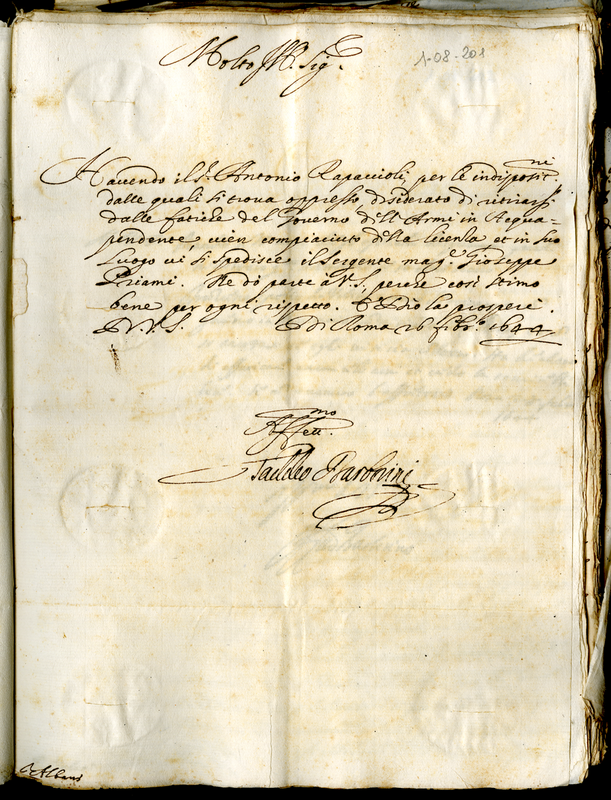 Molto Ill. Sig.re
1-08-201
Havendo il S.r Antonio Rapaccioli per le indispositni
dalle quali si trova oppresso, desiderato di ritirarsi
dalle fatiche del Governo dell'Armi in Acqua=
pendente, vien compiaciuto della licenza et in suo
luogo vi si spedisce il Sergente mag.e Gioseppe
Priami. Ne dò parte à V.S., perche così stimo
bene per ogni rispetto. E Dio la prosperi.
Di V.S. Di Roma 26 febr.o 1644
Affett.mo
Taddeo Barberini